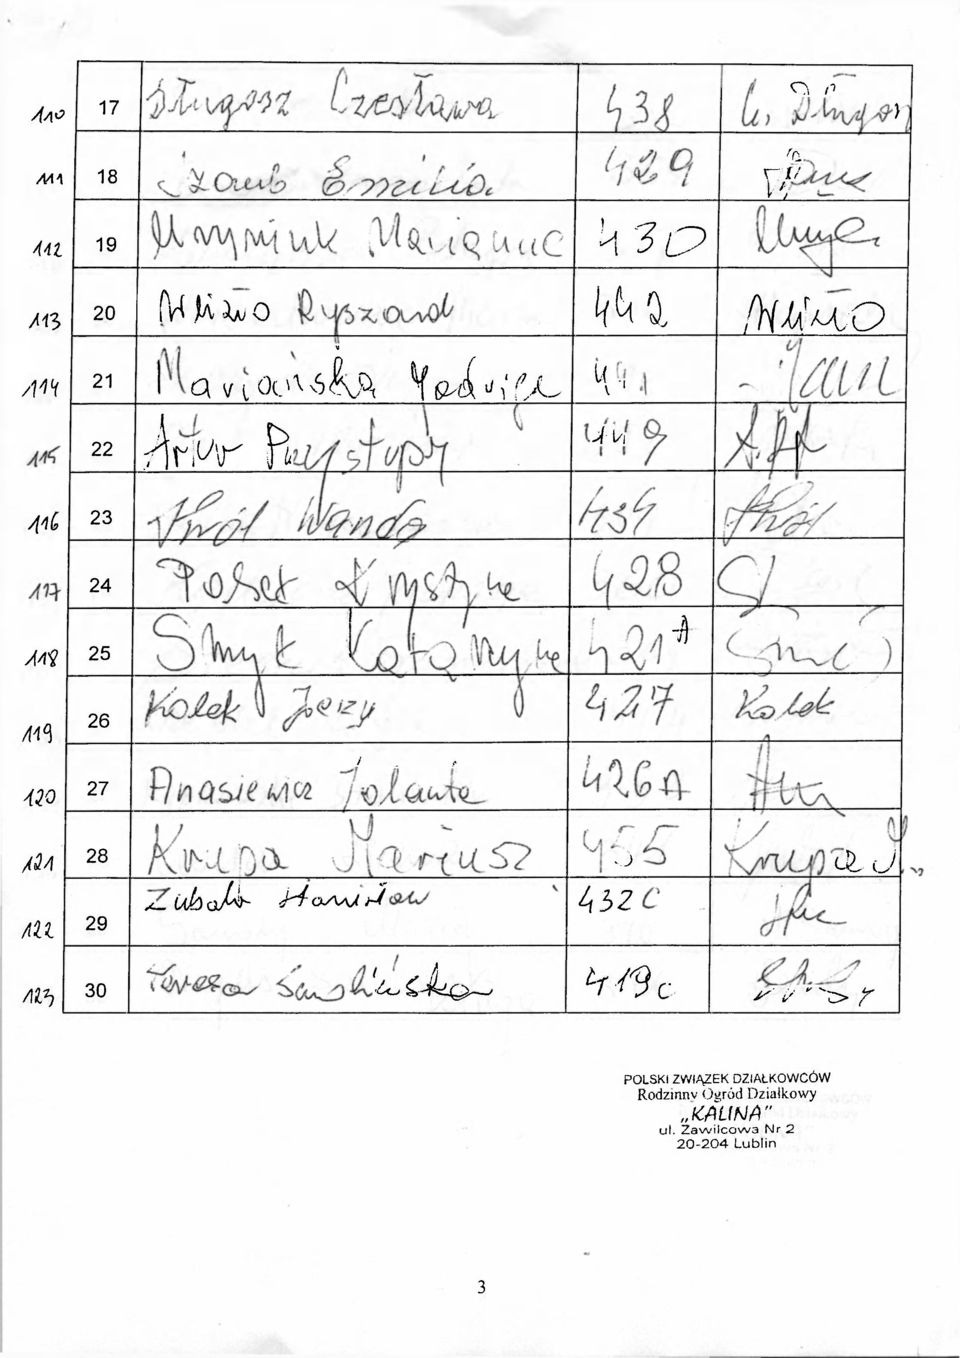 110 17 Długosz Czesława 438 Cz. Długosz
111 18 Emilia 429
112 19 430
113 20 Wlizło Ryszard 442 Wlizło
114 21 Mariańska Jadwiga 441
115 22 Artur Przystupa 449
116 23 Król Wanda 434 Król
117 24 Krystyna 428
118 25 Smyk Katarzyna 421A
119 26 Kołek Jerzy 427 Kołek
120 27 Anasiewicz Jolanta 426A
121 28 Krupa Mariusz 455 Krupa M.
122 29 Zubala Stanisław 432C
123 30 Teresa 419c
POLSKI ZWIĄZEK DZIAŁKOWCÓW
Rodzinny Ogród Działkowy
„KALINA"
ul. Zawilcowa Nr 2
20-204 Lublin
3